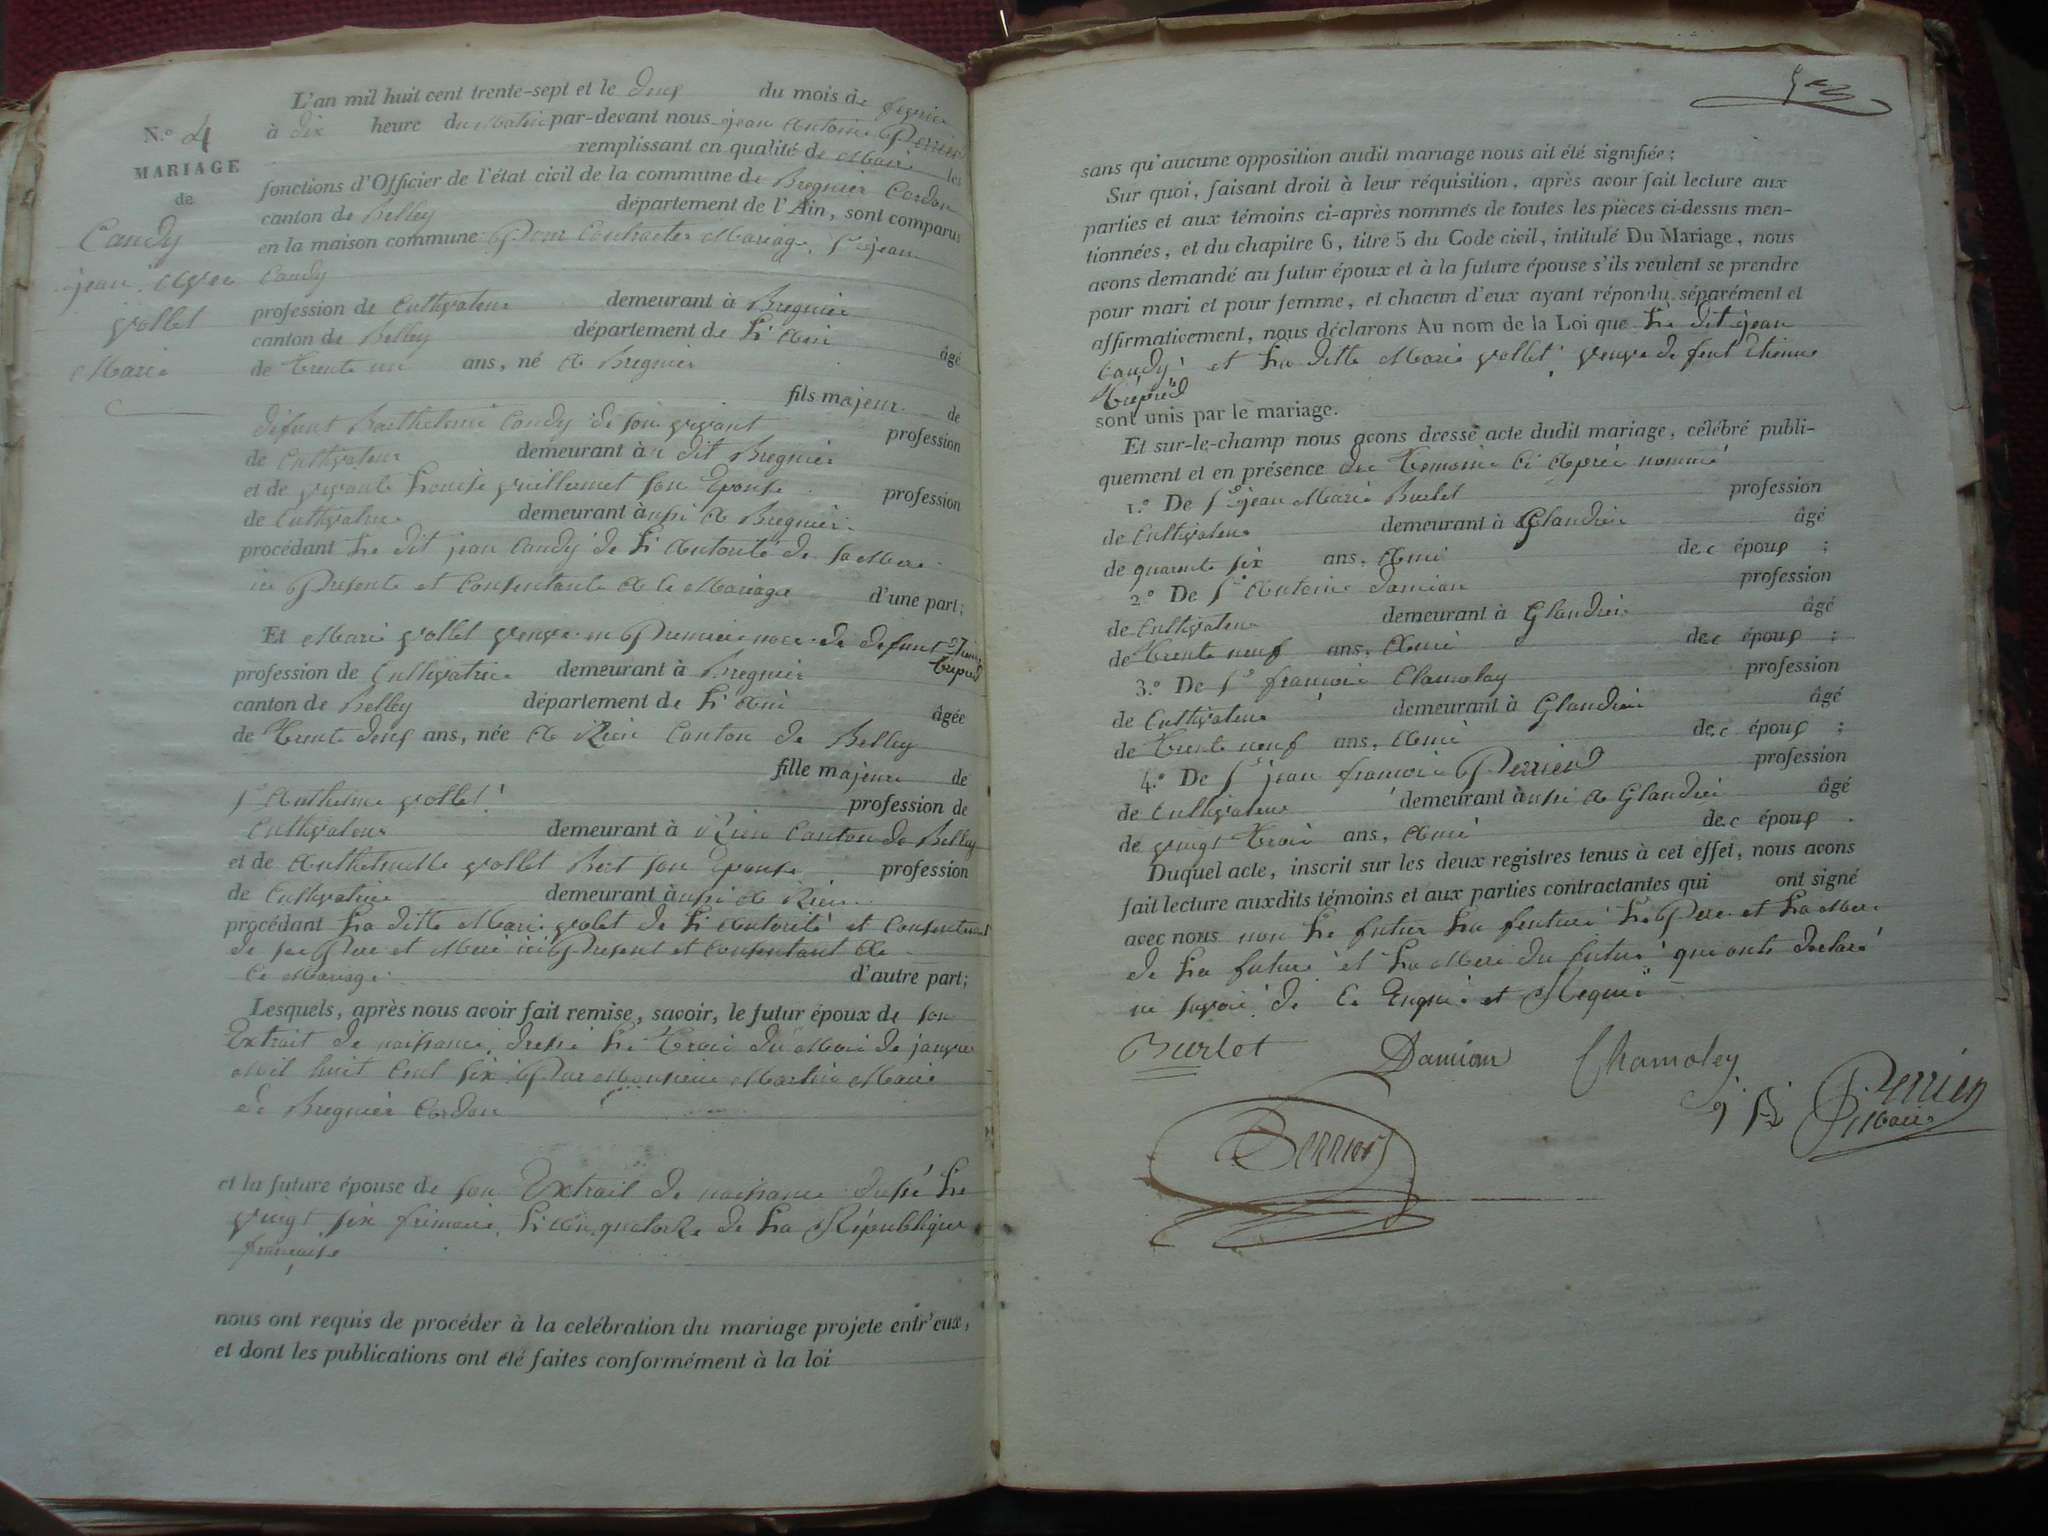 L'an mil huit cent trente-sept et le deux du mois de fevrier
à dix heure du Matin par-devant nous jean Antoine Perrier
remplissant en qualité de Maire les
fonctions d'Officier de l'état civil de la commune de Bregnier Cordon
canton de Belley département de l'Ain, sont comparus
en la maison commune Pour Contracter Mariage, Sr jean
Candy
profession de Cultivateur demeurant à Bregnier
canton de Belley département de L'Ain âgé
de trente un ans, né a Bregnier
fils majeur de
défunt Barthelemi Candy de son vivant profession
de Cultivateur demeurant au dit Bregnier
et de vivante Louise guillermet son Epouse profession
de Cultivatrice demeurant aussi a Bregnier
procédant Le dit jean Candy de L'Autorité de sa Mere
ici Presente et Consentante a Ce Mariage d'une part;
Et Marie vollet veuve en Premiere noce de défunt Etienne
Trepied
profession de Cultivatrice demeurant à Bregnier
canton de Belley département de L'Ain âgée
de Trente deux ans, née a Canton de Belley
fille majeure de
Sr Anthelme vollet profession de
Cultivateur demeurant à Canton de Belley
et de vollet Bert son Epouse profession
de Cultivatrice demeurant aussi a
procédant La ditte Marie volet de L'Autorité et Consentement
de ses Pere et Mere ici Present et Consentant a
Ce Mariage d'autre part;
Lesquels, après nous avoir fait remise, savoir, le futur époux de son
Extrait de naissance, dressé Le Trois du Mois de janvier
Mil huit Cent six Par Monsieur Martin Maire
de Bregnier Cordon
et la future épouse de son Extrait de naissance dressé Le
vingt six frimaire, L'An quatorze de La République
française
nous ont requis de procéder à la celébration du mariage projete entr'eux,
et dont les publications ont été faites conformément à la loi
N.º 4
MARIAGE
de
Candy
jean. Avec
vollet
Marie
sans qu'aucune opposition audit mariage nous ait été signifiée;
Sur quoi, faisant droit à leur réquisition, après avoir fait lecture aux
parties et aux témoins ci-après nommés de toutes les pièces ci-dessus men-
tionnées, et du chapitre 6, titre 5 du Code civil, intitulé Du Mariage, nous
avons demandé au futur époux et à la future épouse s'ils veulent se prendre
pour mari et pour femme, et chacun d'eux ayant répondu séparément et
affirmativement, nous déclarons Au nom de la Loi que Le dit jean
Candy et La ditte Marie vollet veuve de feut Etienne
Trepied
sont unis par le mariage.
Et sur-le-champ nous avons dressé acte dudit mariage, célébré publi-
quement et en présence des Temoins Ci Après nommé
1.º De Sr jean Marie Burlet profession
de Cultivateur demeurant à Glandieu âgé
de quarente six ans, Ami des époux ;
2.º De Sr Antoine Damian profession
de Cultivateur demeurant à Glandieu âgé
de Trente neuf ans, Ami des époux ;
3.º De Sr francois Chamolay profession
de Cultivateur demeurant à Glandieu âgé
de Trente neuf ans, Ami des époux ;
4.º De Sr jean francois Perrier profession
de Cultivateur demeurant aussi a Glandieu âgé
de vingt Trois ans, Ami des époux .
Duquel acte, inscrit sur les deux registres tenus à cet effet, nous avons
fait lecture auxdits témoins et aux parties contractantes qui ont signé
avec nous non Le futur La futture Le Pere et La Mere
de La future et La Mere du futur qui onts declaré
ne savoir de Ce Enquis et Requis
Burlet Damian Chamoley
Perrier
Maire
Perrier